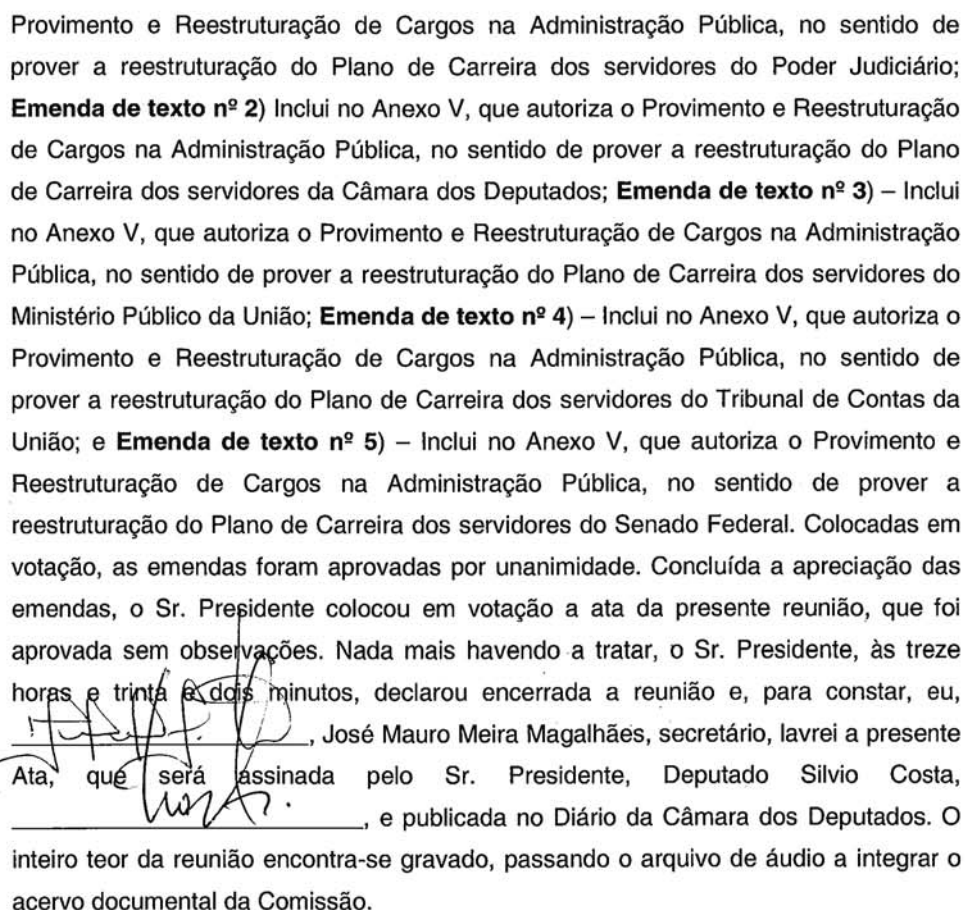 Provimento e Reestruturação de Cargos na Administração Pública, no sentido de
prover a reestruturação do Plano de Carreira dos servidores do Poder Judiciário;
Emenda de texto nº 2) Inclui no Anexo V, que autoriza o Provimento e Reestruturação
de Cargos na Administração Pública, no sentido de prover a reestruturação do Plano
de Carreira dos servidores da Câmara dos Deputados; Emenda de texto nº 3) – Inclui
no Anexo V, que autoriza o Provimento e Reestruturação de Cargos na Administração
Pública, no sentido de prover a reestruturação do Plano de Carreira dos servidores do
Ministério Público da União; Emenda de texto nº 4) – Inclui no Anexo V, que autoriza o
Provimento e Reestruturação de Cargos na Administração Pública, no sentido de
prover a reestruturação do Plano de Carreira dos servidores do Tribunal de Contas da
União; e Emenda de texto nº 5) – Inclui no Anexo V, que autoriza o Provimento e
Reestruturação de Cargos na Administração Pública, no sentido de prover a
reestruturação do Plano de Carreira dos servidores do Senado Federal. Colocadas em
votação, as emendas foram aprovadas por unanimidade. Concluída a apreciação das
emendas, o Sr. Presidente colocou em votação a ata da presente reunião, que foi
aprovada sem observações. Nada mais havendo a tratar, o Sr. Presidente, às treze
horas e trinta e dois minutos, declarou encerrada a reunião e, para constar, eu,
, José Mauro Meira Magalhães, secretário, lavrei a presente
Ata, que será assinada pelo Sr. Presidente, Deputado Silvio Costa,
, e publicada no Diário da Câmara dos Deputados. O
inteiro teor da reunião encontra-se gravado, passando o arquivo de áudio a integrar o
acervo documental da Comissão.